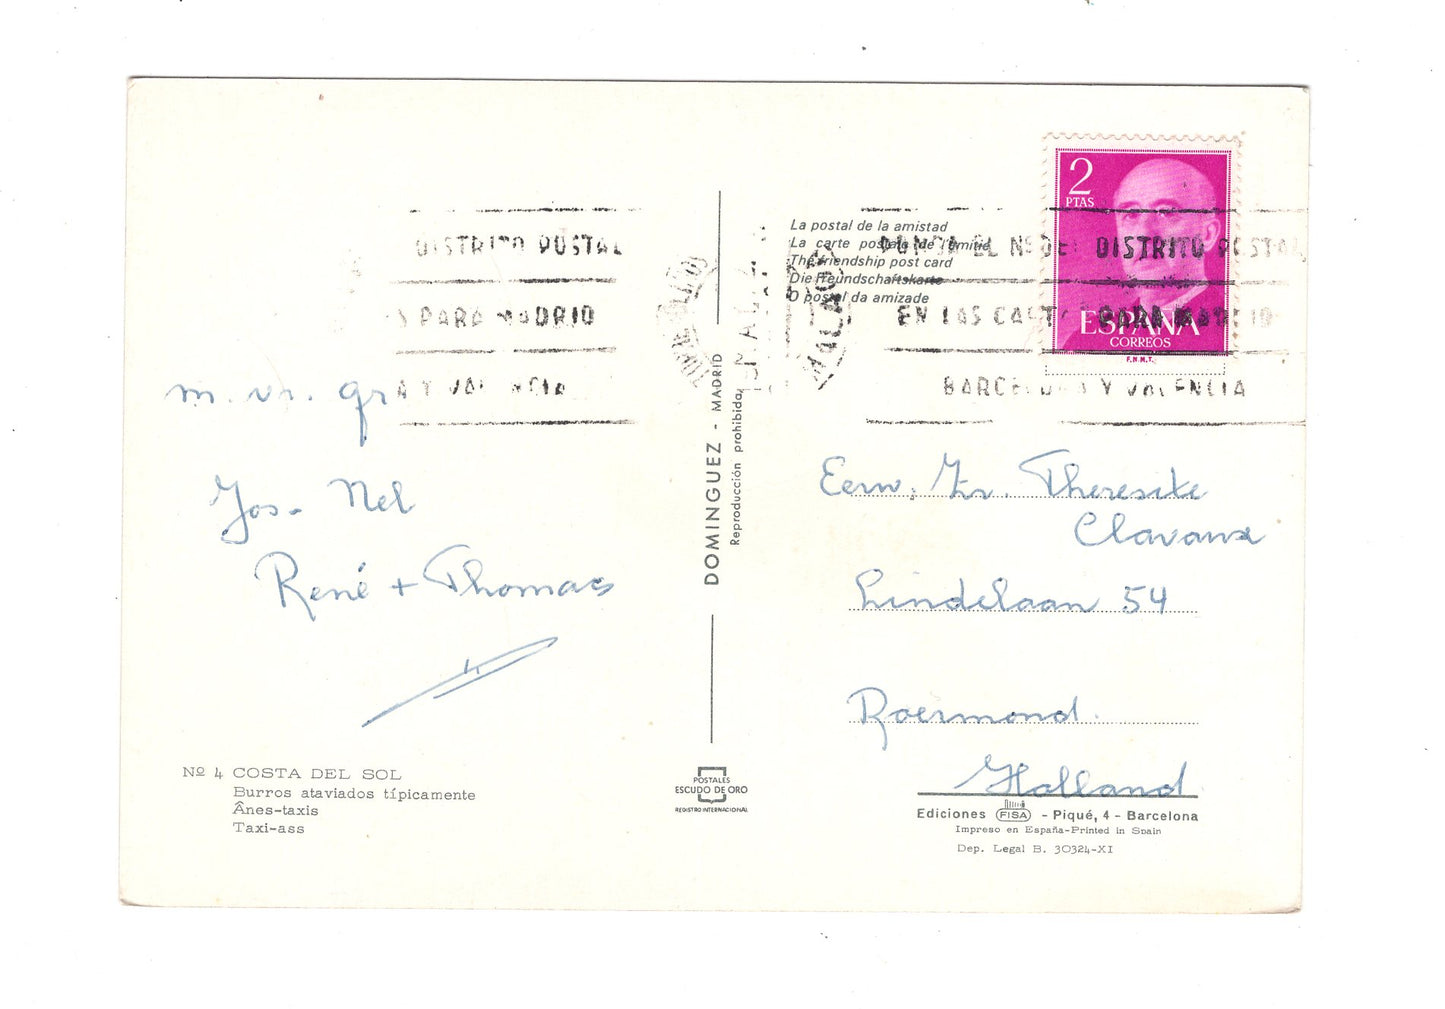 DISTRITO POSTAL
PARA MADRID
A Y VALENCIA
m. vr. gr
Jos - Nel
René + Thomas
Nº 4 COSTA DEL SOL
Burros ataviados típicamente
Ânes-taxis
Taxi-ass
DOMINGUEZ - MADRID
Reproducción prohibida
POSTALES
ESCUDO DE ORO
REGISTRO INTERNACIONAL
La postal de la amistad
La carte postale de l'amitié
The friendship post card
Die Freundschaftskarte
O postal da amizade
MALAGA
2
PTAS
ESPAÑA
CORREOS
F.N.M.T.
PONGA EL Nº DE DISTRITO POSTAL
EN LAS CARTAS PARA MADRID
BARCELONA Y VALENCIA
Eerw. Zr. Theresite
Clavana
Lindelaan 54
Roermond.
Holland
Ediciones FISA - Piqué, 4 - Barcelona
Impreso en España-Printed in Spain
Dep. Legal B. 30324-XI